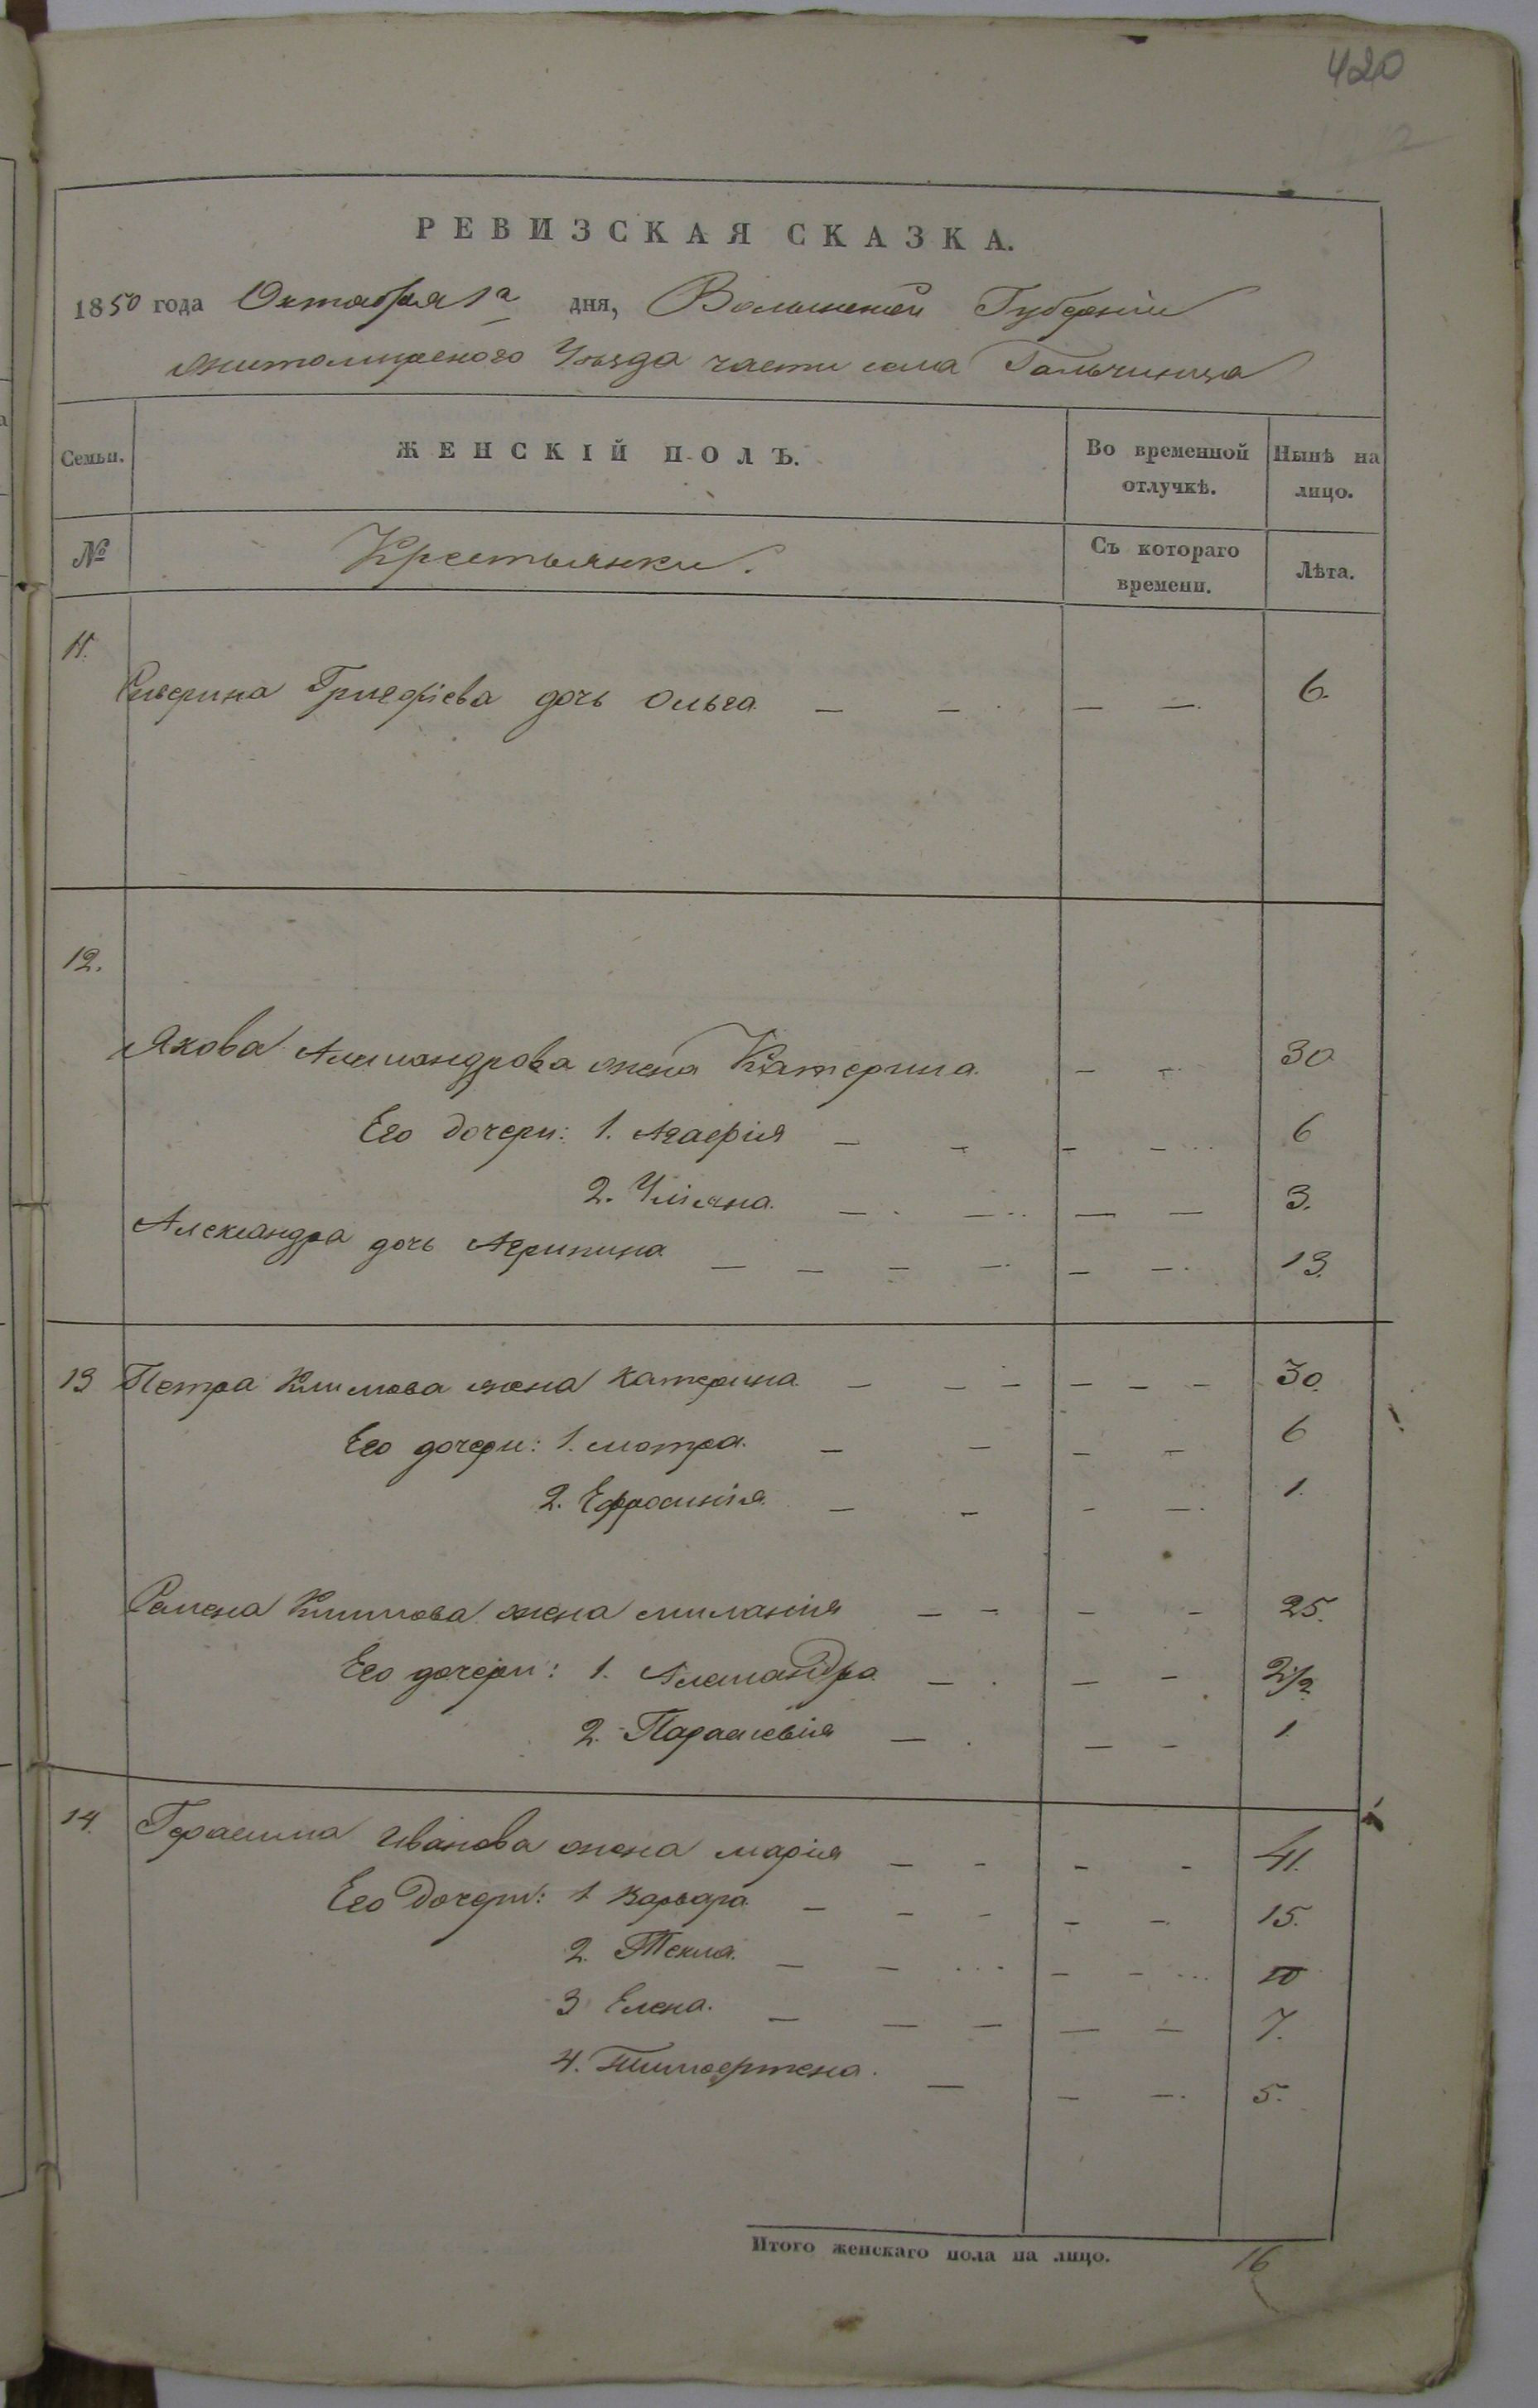 420
РЕВИЗСКАЯ СКАЗКА.
1850 года Октября 1го дня, Волынской Губерніи
Житомирского Уѣзда части села Гальчинца
Семьи. ЖЕНСКІЙ ПОЛЪ. Во временной отлучкѣ. Нынѣ на лицо.
№ Крестьянки. Съ котораго времени. Лѣта.
11.
Северина дочь Ольга — — — — 6.
12.
Якова Александрова жена Катерина — — 30
Его дочери: 1. Агафія — — — — 6
2. Уліяна — — — — 3.
Александра дочь Агрипина — — — — — — 13.
13 Петра Климова жена Катерина — — — — — — 30.
Его дочери: 1. Мотра. — — — — 6
2. Ефросинія — — — — 1.
Семена Климова жена Миланія — — — — 25.
Его дочери: 1. Александра — — — 2 1/2
2. Параскевія — — — 1
14. Герасима Иванова жена Марія — — — — 41.
Его дочери: 1 Варвара — — — — — 15.
2. Текла. — — — — 10
3 Елена. — — — — — 7.
4. — — — 5.
Итого женскаго пола на лицо. 16